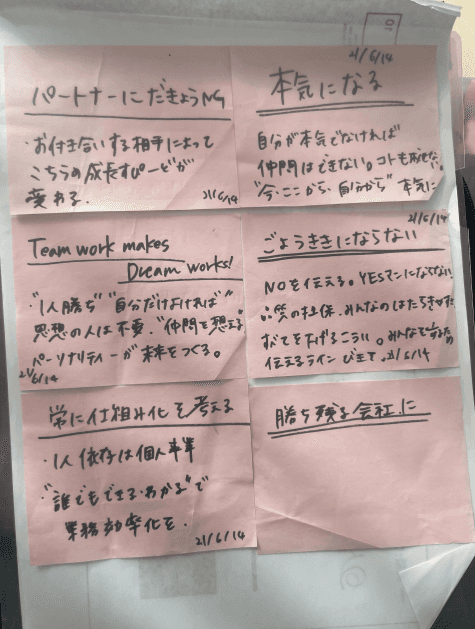 21/6/14
パートナーにだきょうNG
・お付き合いする相手によって
こちらの成長すぴーどが
変わる.
21/6/14
本気になる
自分が本気でなければ
仲間はできない。コトも
"今・ここから、自分から" 本気に
Team work makes
Dream works!
・"1人勝ち" "自分だけよければ"
思想の人は不要. "仲間を想える"
パーソナリティーが未来をつくる。
21/6/14
21/6/14
ごようききにならない
NOを伝える。YESマンにならない
品質の担保. みんなのはたらきやすさ
すべてを下げるこうい。みんなを
伝えるライン 21/6/14
常に仕組み化を考える
・1人依存は個人事業
・"誰でもできる・わかる"で
業務効率化を.
21/6/14
勝ち残る会社に